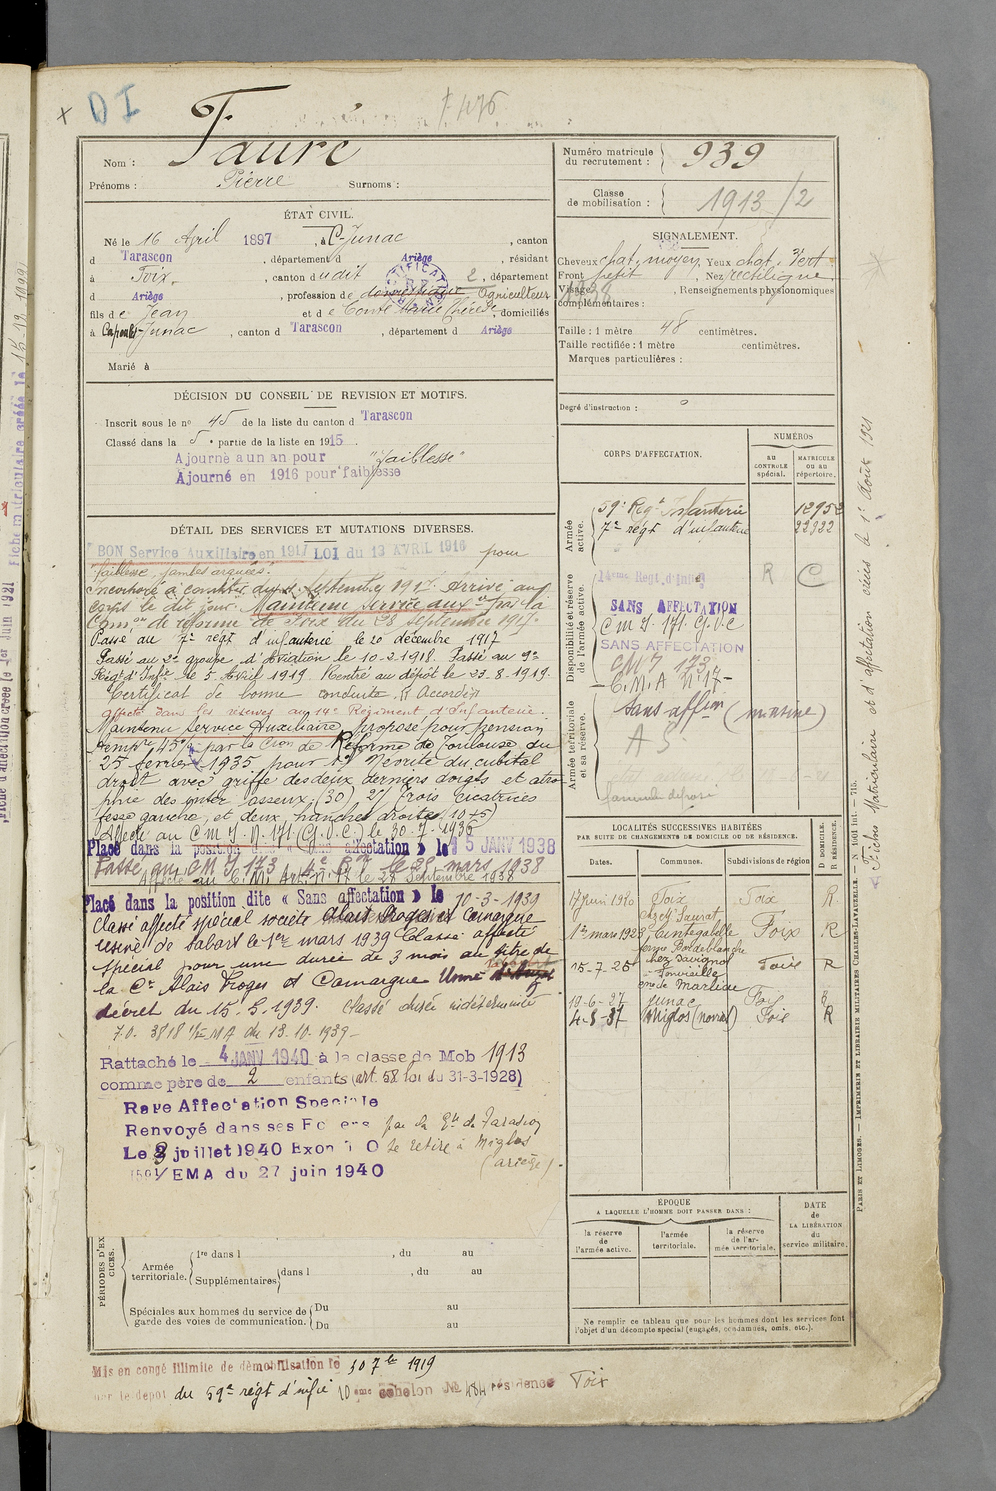 DI
Nom : Faure
Prénoms : Pierre Surnoms :
Numéro matricule du recrutement : 939
Classe de mobilisation : 1913/2
ÉTAT CIVIL.
Né le 16 Avril 1897, à C. Junac, canton
d Tarascon, département d Ariège, résidant
à Foix, canton dudit, département
d Ariège, profession de domestique Agriculteur
fils de Jean et de Marie Thérèse, domiciliés
à Capoulet-Junac, canton d Tarascon, département d Ariège
Marié à
SIGNALEMENT.
Cheveux chat. moyen, Yeux chat. vert
Front petit, Nez rectiligne
Visage, Renseignements physionomiques
complémentaires :
Taille : 1 mètre 48 centimètres.
Taille rectifiée : 1 mètre centimètres.
Marques particulières :
Degré d'instruction :
DÉCISION DU CONSEIL DE REVISION ET MOTIFS.
Inscrit sous le n° 45 de la liste du canton d Tarascon
Classé dans la 5e partie de la liste en 1915
Ajourné a un an pour "faiblesse"
Ajourné en 1916 pour faiblesse
DÉTAIL DES SERVICES ET MUTATIONS DIVERSES.
BON Service Auxiliaire en 1917 LOI du 13 AVRIL 1916 pour
faiblesse, jambes arquées.
Incorporé à compter du Septembre 1917. Arrivé au
corps le dit jour. Maintenu service aux re par la
Com on de réforme de Foix du 28 septembre 1917.
Passé au 7e régt d'infanterie le 20 décembre 1917
Passé au 2e groupe d'Aviation le 10-2-1918. Passé au 9e
Régt d'Infie le 5 Avril 1919. Rentré au dépôt le 23.8.1919.
Certificat de bonne conduite "Accordé"
affecté dans les réserves au 14e Régiment d'Infanterie.
Maintenu Service Auxiliaire, proposé pour pension
temp re 45% par la Cion de Réforme de Toulouse du
25 février 1935 pour 1° Névrite du cubital
droit avec griffe des deux derniers doigts et atro
phie des inter osseux (30) 2°/ Trois cicatrices
fesse gauche, et deux, hanche droite (10+5)
Affecté au C M I. N. 171 (G.V.C.) le 30-7-1936
Placé dans la position dite « Sans affectation » le 15 JANV 1938
Passé au CM I 173 le mars 1938
Affecté au C.M. Art. N° 17 le 28 Septembre 1938
Placé dans la position dite « Sans affectation » le 10-3-1939
Classé affecté spécial société Alais Froges et Camargue
usine de Sabart le 1er mars 1939 Classé affecté
spécial pour une durée de 3 mois au titre de
la Cie Alais Froges et Camargue Usine
décret du 15.5.1939. Classé durée indéterminée
7.0. 3818 1/EMA du 13.10.1939
Rattaché le 4 JANV 1940 à la classe de Mob 1913
comme père de 2 enfants (art. 58 loi du 31-3-1928)
Rayé Affectation Spéciale
Renvoyé dans ses Foyers par la Gie de Tarascon
Le 2 juillet 1940 se retire à Miglos
1/EMA du 27 juin 1940 (ariège).
CORPS D'AFFECTATION.
NUMÉROS
AU CONTROLE spécial.
MATRICULE OU AU répertoire.
Armée active.
59e Régt Infanterie 12952
7e régt d'infanterie 22322
Disponibilité et réserve de l'armée active.
14eme Régt d'Infie R C
SANS AFFECTATION
C M I. 171. G.V.C
SANS AFFECTATION
C M I 173
C.M.A N° 17
Armée territoriale et sa réserve.
Sans affon
A S
LOCALITÉS SUCCESSIVES HABITÉES
PAR SUITE DE CHANGEMENTS DE DOMICILE OU DE RÉSIDENCE.
Dates. Communes. Subdivisions de région D DOMICILE. R RÉSIDENCE.
17 Juin 1920 Foix Foix R
1er mars 1923 Foix R
15-7-25 chez Savignol Foix R
19-6-27 Junac Foix R
4-8-37 Miglos Foix R
ÉPOQUE
A LAQUELLE L'HOMME DOIT PASSER DANS :
la réserve de l'armée active.
l'armée territoriale.
la réserve de l'armée territoriale.
DATE de LA LIBÉRATION du service militaire.
Ne remplir ce tableau que pour les hommes dont les services font
l'objet d'un décompte spécial (engagés, condamnés, omis, etc.).
PÉRIODES D'EXERCICES.
Armée territoriale.
1re dans l , du au
Supplémentaires dans l , du au
Spéciales aux hommes du service de garde des voies de communication.
Du au
Du au
Mis en congé illimité de démobilisation le 30 7bre 1919
par le dépôt du 59e régt d'infie 10eme échelon No 484 résidence Foix
Fiche Matriculaire et d'affectation créées le 1er Août 1921
PARIS ET LIMOGES. — IMPRIMERIE ET LIBRAIRIE MILITAIRES CHARLES-LAVAUZELLE. — N° 1001 int. — 715.